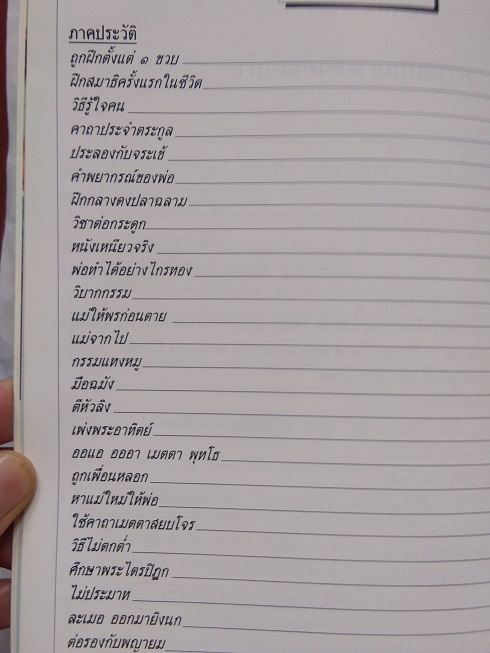 ภาคประวัติ
ถูกฝึกตั้งแต่ ๑ ขวบ
ฝึกสมาธิครั้งแรกในชีวิต
วิธีรู้ใจคน
คาถาประจำตระกูล
ประลองกับจระเข้
คำพยากรณ์ของพ่อ
ฝึกกลางดงปลาฉลาม
วิชาต่อกระดูก
หนังเหนียวจริง
พ่อทำได้อย่างไกรทอง
วิบากกรรม
แม่ให้พรก่อนตาย
แม่จากไป
กรรมแทงหมู
มือฉมัง
ตีหัวลิง
เพ่งพระอาทิตย์
ออแอ อออา เมตตา พุทโธ
ถูกเพื่อนหลอก
หาแม่ใหม่ให้พ่อ
ใช้คาถาเมตตาสยบโจร
วิธีไม่ตกต่ำ
ศึกษาพระไตรปิฎก
ไม่ประมาท
ละเมอ ออกมายิงนก
ต่อรองกับพญายม